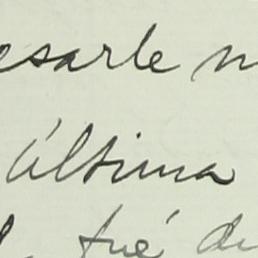 esarle
última
fué